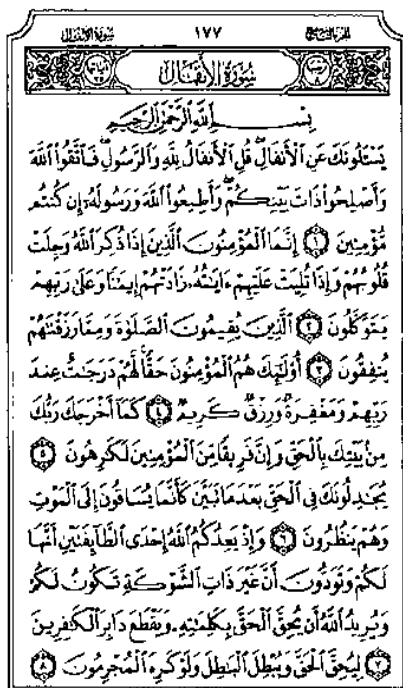 سورة الأنفال ١٧٧ الجزء التاسع
سورة الأنفال
بِسْمِ اللَّهِ الرَّحْمَٰنِ الرَّحِيمِ
يَسْـَٔلُونَكَ عَنِ ٱلْأَنفَالِۖ قُلِ ٱلْأَنفَالُ لِلَّهِ وَٱلرَّسُولِۖ فَٱتَّقُوا۟ ٱللَّهَ
وَأَصْلِحُوا۟ ذَاتَ بَيْنِكُمْۖ وَأَطِيعُوا۟ ٱللَّهَ وَرَسُولَهُۥٓ إِن كُنتُم
مُّؤْمِنِينَ ١ إِنَّمَا ٱلْمُؤْمِنُونَ ٱلَّذِينَ إِذَا ذُكِرَ ٱللَّهُ وَجِلَتْ
قُلُوبُهُمْ وَإِذَا تُلِيَتْ عَلَيْهِمْ ءَايَٰتُهُۥ زَادَتْهُمْ إِيمَٰنًا وَعَلَىٰ رَبِّهِمْ
يَتَوَكَّلُونَ ٢ ٱلَّذِينَ يُقِيمُونَ ٱلصَّلَوٰةَ وَمِمَّا رَزَقْنَٰهُمْ
يُنفِقُونَ ٣ أُو۟لَٰٓئِكَ هُمُ ٱلْمُؤْمِنُونَ حَقًّاۚ لَّهُمْ دَرَجَٰتٌ عِندَ
رَبِّهِمْ وَمَغْفِرَةٌ وَرِزْقٌ كَرِيمٌ ٤ كَمَآ أَخْرَجَكَ رَبُّكَ
مِنۢ بَيْتِكَ بِٱلْحَقِّ وَإِنَّ فَرِيقًا مِّنَ ٱلْمُؤْمِنِينَ لَكَٰرِهُونَ ٥
يُجَٰدِلُونَكَ فِى ٱلْحَقِّ بَعْدَمَا تَبَيَّنَ كَأَنَّمَا يُسَاقُونَ إِلَى ٱلْمَوْتِ
وَهُمْ يَنظُرُونَ ٦ وَإِذْ يَعِدُكُمُ ٱللَّهُ إِحْدَى ٱلطَّآئِفَتَيْنِ أَنَّهَا
لَكُمْ وَتَوَدُّونَ أَنَّ غَيْرَ ذَاتِ ٱلشَّوْكَةِ تَكُونُ لَكُمْ
وَيُرِيدُ ٱللَّهُ أَن يُحِقَّ ٱلْحَقَّ بِكَلِمَٰتِهِۦ وَيَقْطَعَ دَابِرَ ٱلْكَٰفِرِينَ
٧ لِيُحِقَّ ٱلْحَقَّ وَيُبْطِلَ ٱلْبَٰطِلَ وَلَوْ كَرِهَ ٱلْمُجْرِمُونَ ٨